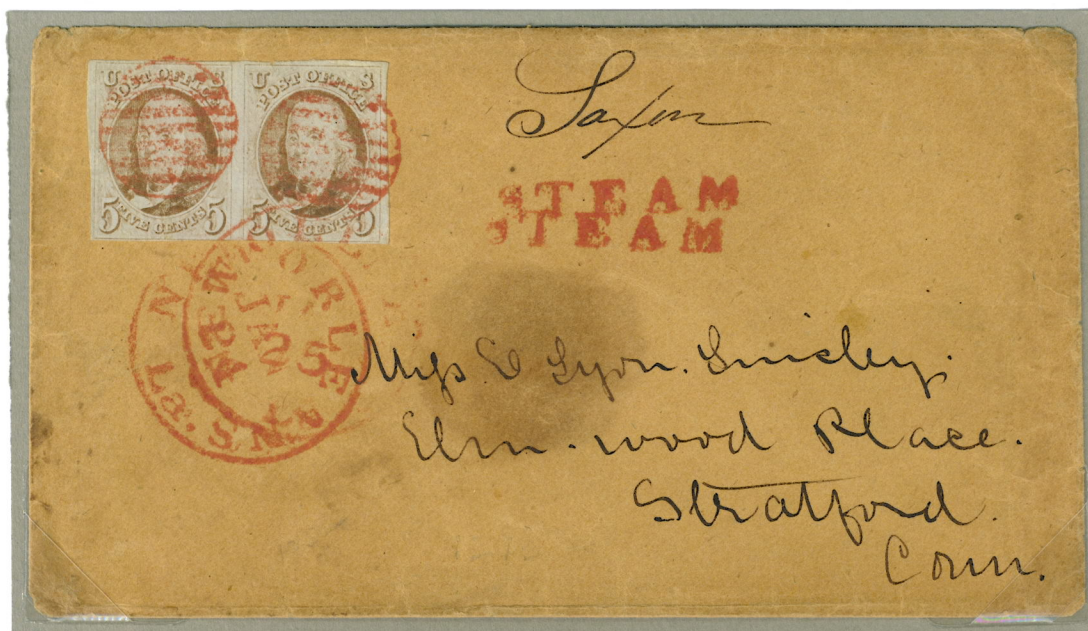 U S
POST OFFICE
5 FIVE CENTS 5
U S
POST OFFICE
5 FIVE CENTS 5
Saxon
STEAM
STEAM
NEW ORLEANS
JAN
25
Miss E Lyon.
Elm-wood Place.
Stratford.
Conn.